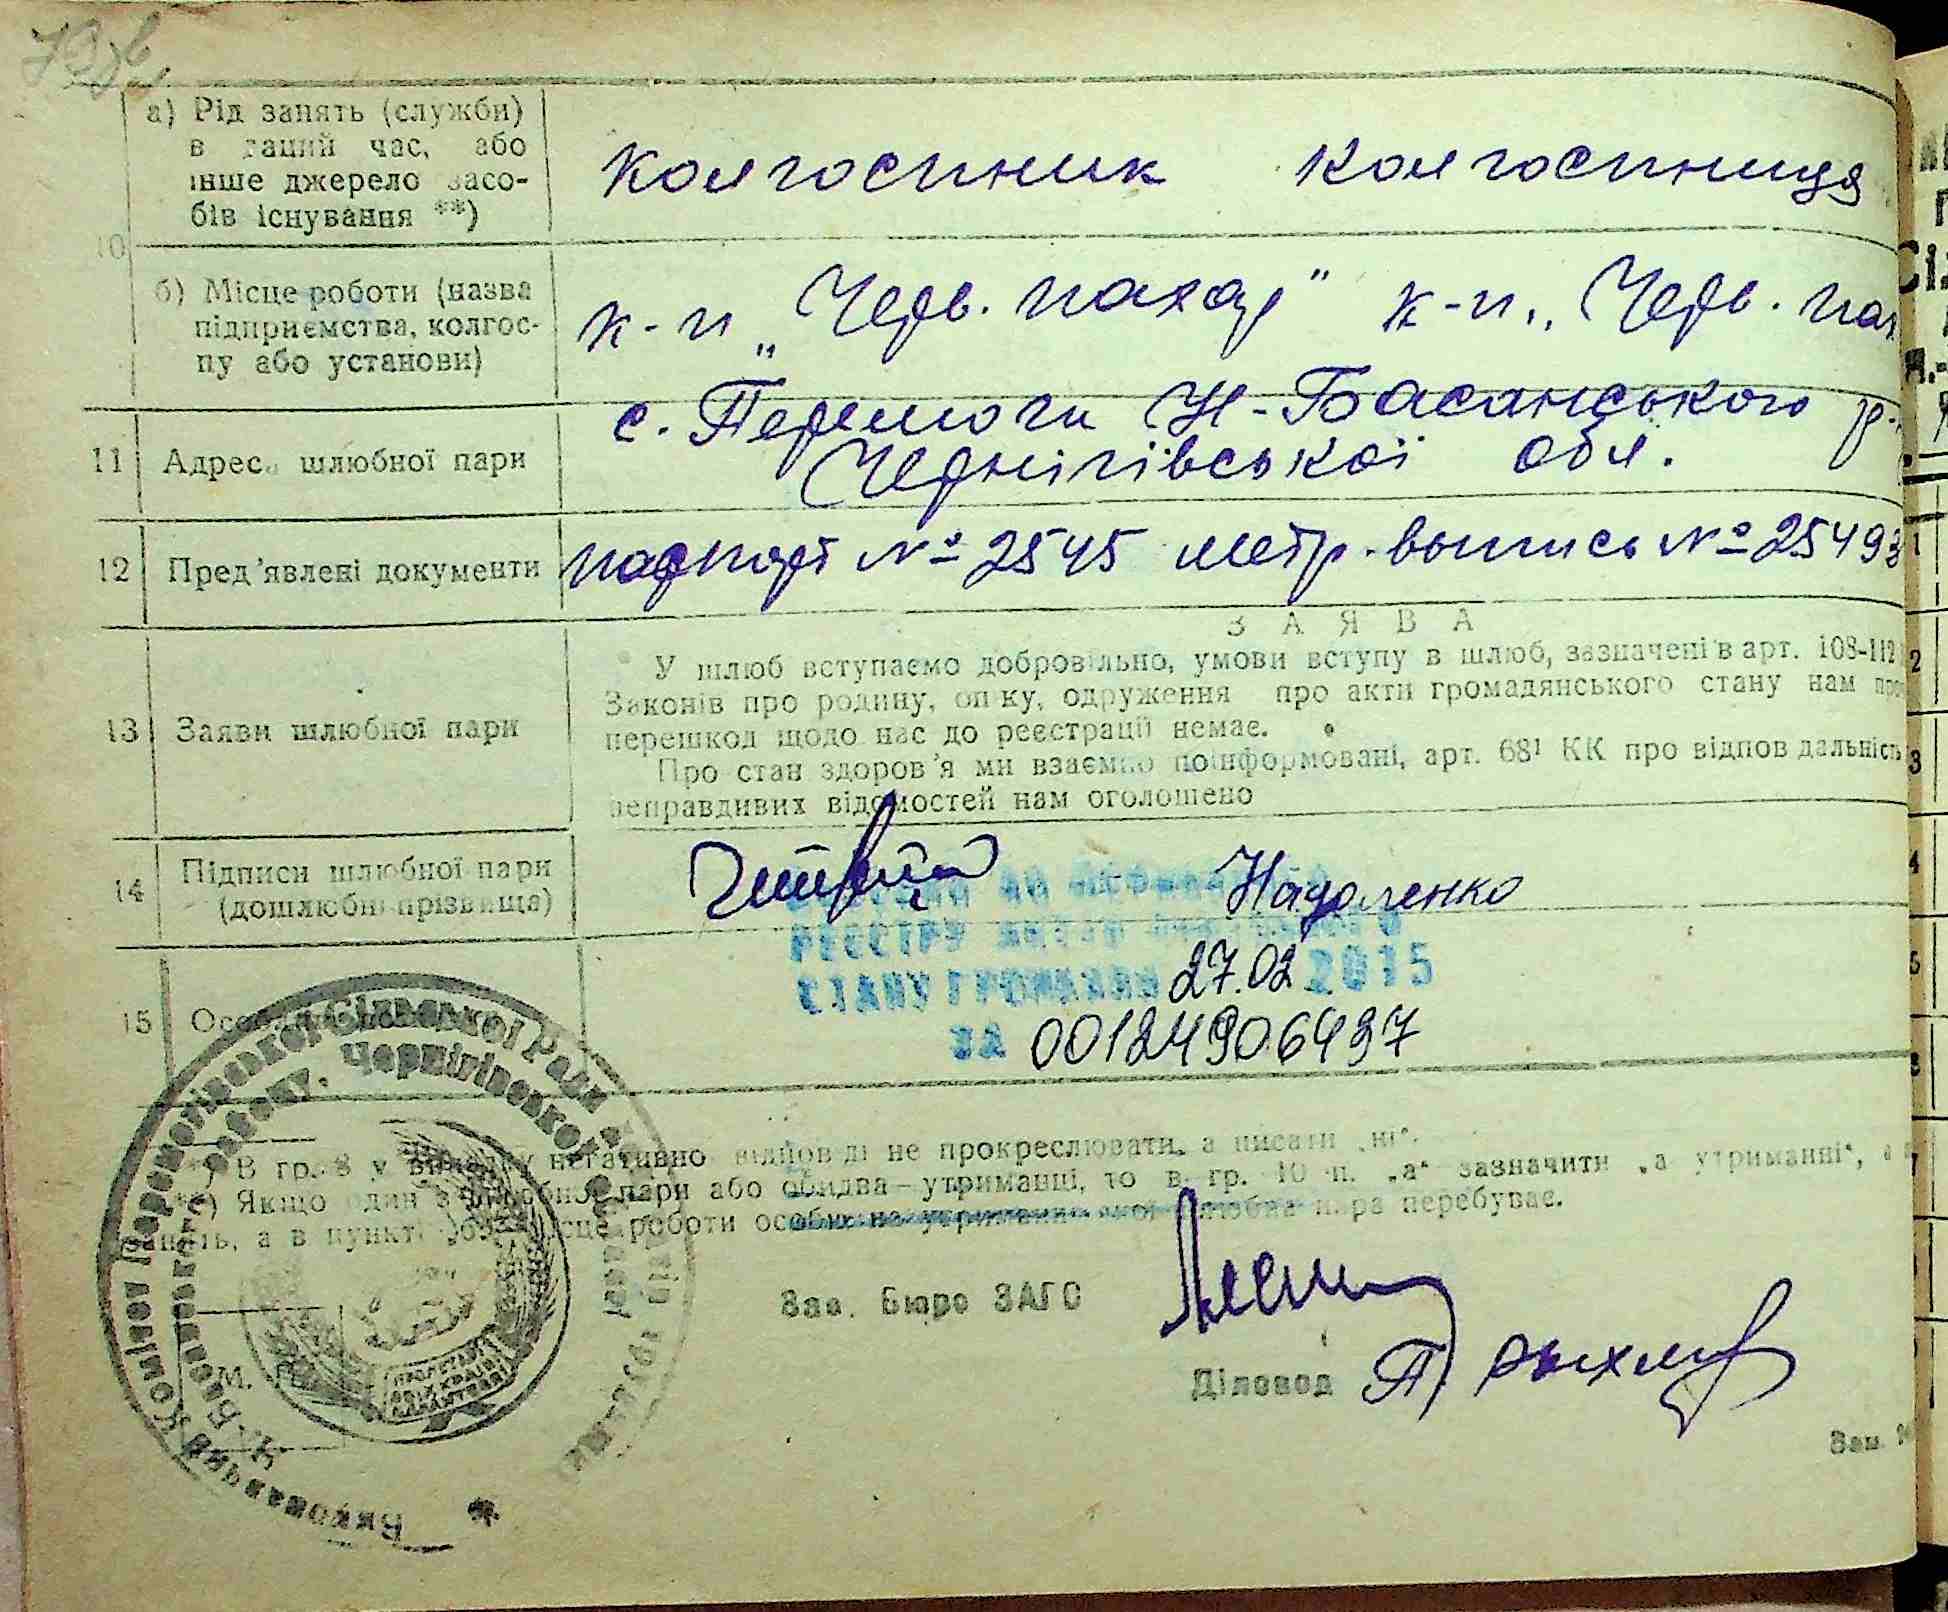 10
а) Рід занять (служби)
в даний час, або
інше джерело засо-
бів існування **)
Колгоспник Колгоспниця
б) Місце роботи (назва
підприємства, колгос-
пу або установи)
к-п „Черв. пахар" к-п „Черв. пах
11 Адреса шлюбної пари
с. Перемоги Н-Басанського р-
Чернігівської обл.
12 Пред'явлені документи
паспорт № 2545 метр. выпись № 25493
13 Заяви шлюбної пари
ЗАЯВА
У шлюб вступаємо добровільно, умови вступу в шлюб, зазначені в арт. 108-112
Законів про родину, опіку, одруження про акти громадянського стану нам
перешкод щодо нас до реєстрації немає.
Про стан здоров'я ми взаємно поінформовані, арт. 68¹ КК про відповідальність
неправдивих відомостей нам оголошено
14 Підписи шлюбної пари
(дошлюбні прізвища)
Надоленко
РЕЄСТРУ АКТІВ
СТАНУ ГРОМАДЯН 27.02 2015
ЗА 001249306497
15
*) В гр. 8 у випадку негативно відповіді не прокреслювати, а писати „ні".
**) Якщо один з шлюбної пари або обидва—утриманці, то в гр. 10 п. „а" зазначити „а утриманні", а
занять, а в пункті „б" місце роботи особи, на утриманні якої шлюбна пара перебуває.
Зав. Бюро ЗАГС
Діловод
М.
Виконавчий Комітет Перемогівської Сільської Ради
Н.-Басанського району, Чернігівської
ПРОЛЕТАРІ
ВСІХ КРАЇН
ЄДНАЙТЕСЯ
Зам.